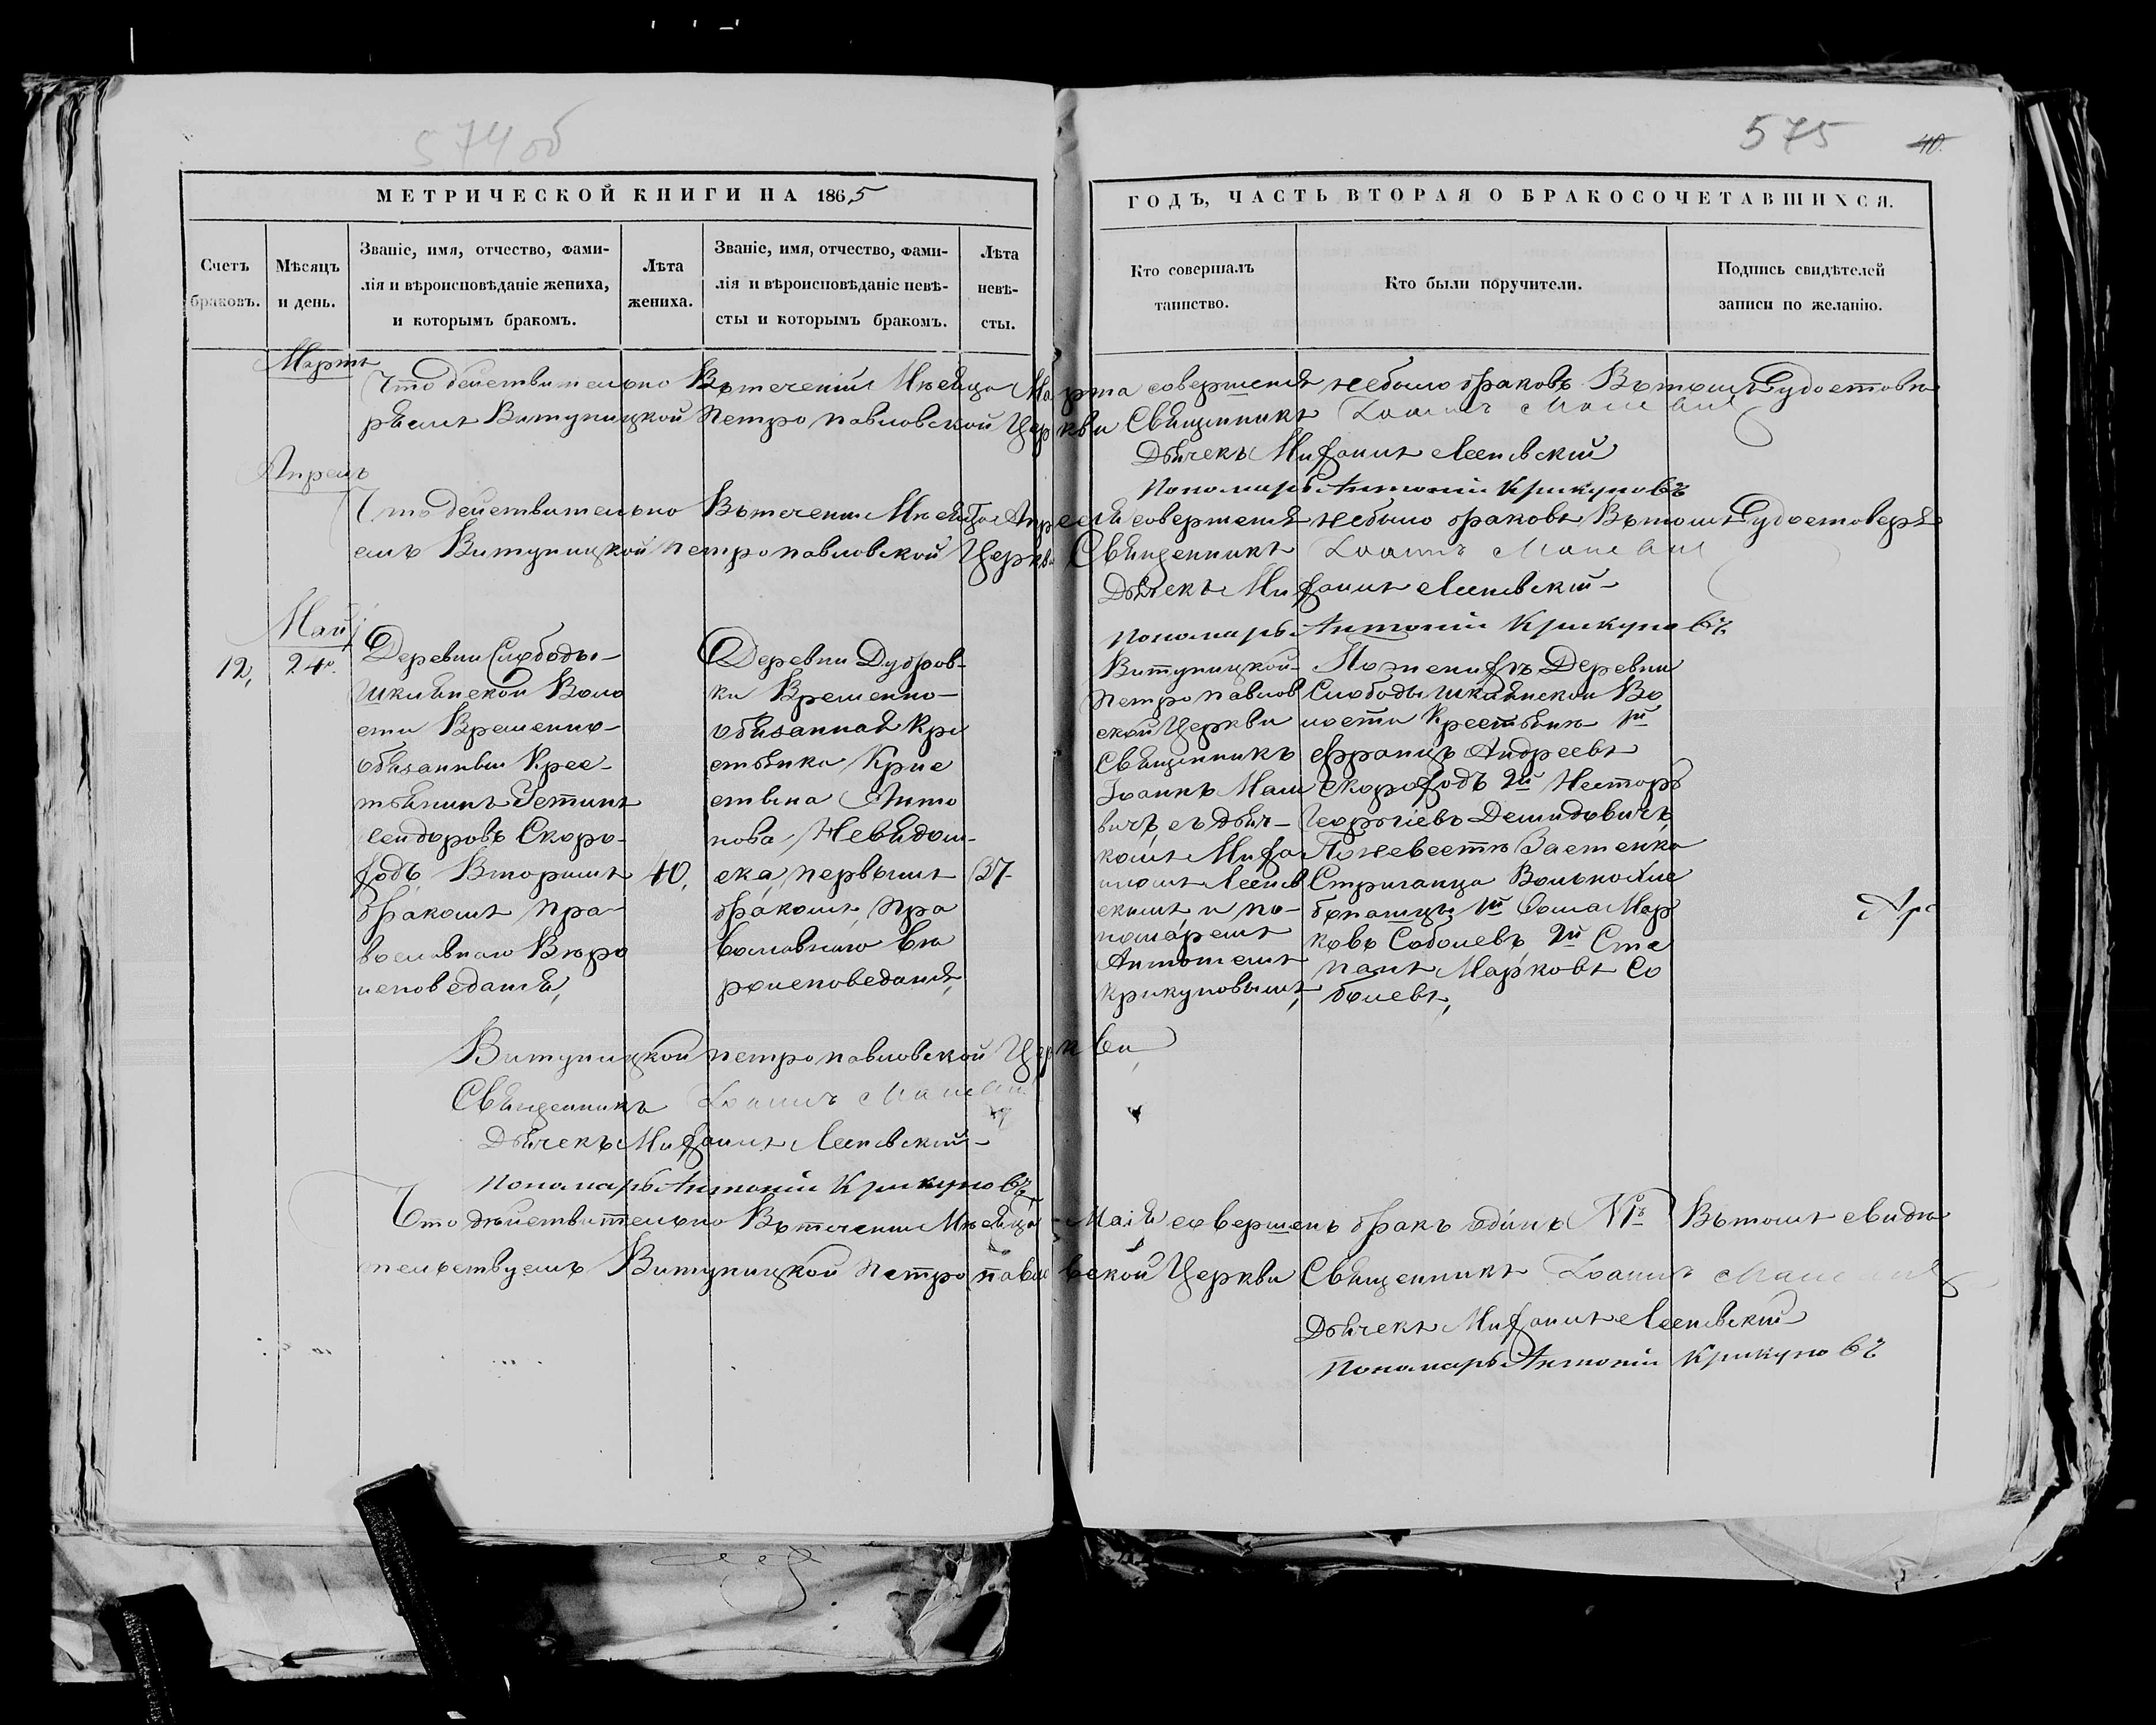 574 об
575
40.
МЕТРИЧЕСКОЙ КНИГИ НА 1865
ГОДЪ, ЧАСТЬ ВТОРАЯ О БРАКОСОЧЕТАВШИХСЯ.
Счетъ браковъ.
Мѣсяцъ и день.
Званіе, имя, отчество, фами-
лія и вѣроисповѣданіе жениха,
и которымъ бракомъ.
Лѣта
жениха.
Званіе, имя, отчество, фами-
лія и вѣроисповѣданіе невѣ-
сты и которымъ бракомъ.
Лѣта
невѣ-
сты.
Кто совершалъ
таинство.
Кто были поручители.
Подпись свидѣтелей
записи по желанію.
Мартъ
Что действительно Въ теченіи Мѣсяца Марта совершенія небыло браковъ Въ томъ удостовѣ
ряемъ Витуницкой Петропавловской Церкви Священникъ Іоаннъ
Дьячекъ Мифаилъ Лсеневский
Пономарь Антоній Крикуновъ
Апрель
Что действительно Въ течени Мѣсяца Апреля совершенія небыло браковъ Въ томъ удостоверя
емъ Витуницкой Петропавловской Церкви Священникъ Іоаннъ
Дьячекъ Мифаилъ Лсеневский
Пономарь Антоній Крикуновъ
Май
12, 24го
Деревни Слободы
Шклянской Воло
сти Временно-
обязанный Крес-
тьянинъ Устинъ
Сендоровъ Скоро-
фодъ, Вторымъ
бракомъ, пра-
вославнаго Вѣро
исповеданія,
40,
Деревни Дубров-
ки Временно-
обязанная Кре
стьянка Крис
тина Анто
нова Невядом-
ска, первымъ
бракомъ, Пра
вославнаго вѣ
роисповеданія,
37-
Витуницкой
Петропавлов
ской Церкви
Священникъ
Іоаннъ Маш
вичъ, съ дьяч-
комъ Мифа
иломъ Лсенев
скимъ и по-
номаремъ
Антониемъ
Крикуновымъ,
По женифѣ Деревни
Слободы Шклянской Во
лости Крестьяне 1й
Францъ Андреевъ
Скорофодъ 2й Несторъ
Георгіевъ Демидовичъ,
По невестѣ Застенка
Стриганца Вольнолю
1й Фома Мар
ковъ Соболевъ, 2й Сте
панъ Марковъ Со
болевъ,
Витуницкой Петропавловской Церкви,
Священникъ Іоаннъ
Дьячекъ Мифаилъ Лсеневский
Пономарь Антоній Крикуновъ
Что дѣйствительно Въ течении Мѣсяца Маія совершенъ бракъ одинъ №1 Въ томъ свидѣ
тельствуемъ Витуницкой Петропавловской Церкви Священникъ Іоаннъ
Дьячекъ Мифаилъ Лсеневский
Пономарь Антоній Крикуновъ